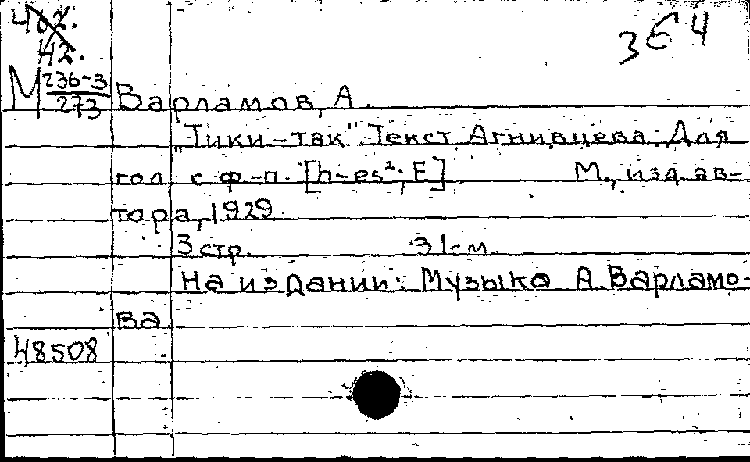 462.
42.
364
М 236-3
273
Варламов, А.
"Тики-так" Текст Агнивцева. Для
гол. с ф-п. [h-es²; E] М., изд. ав-
тора, 1929.
3 стр. 31 см.
На издании: Музыка А. Варламо-
ва
48508